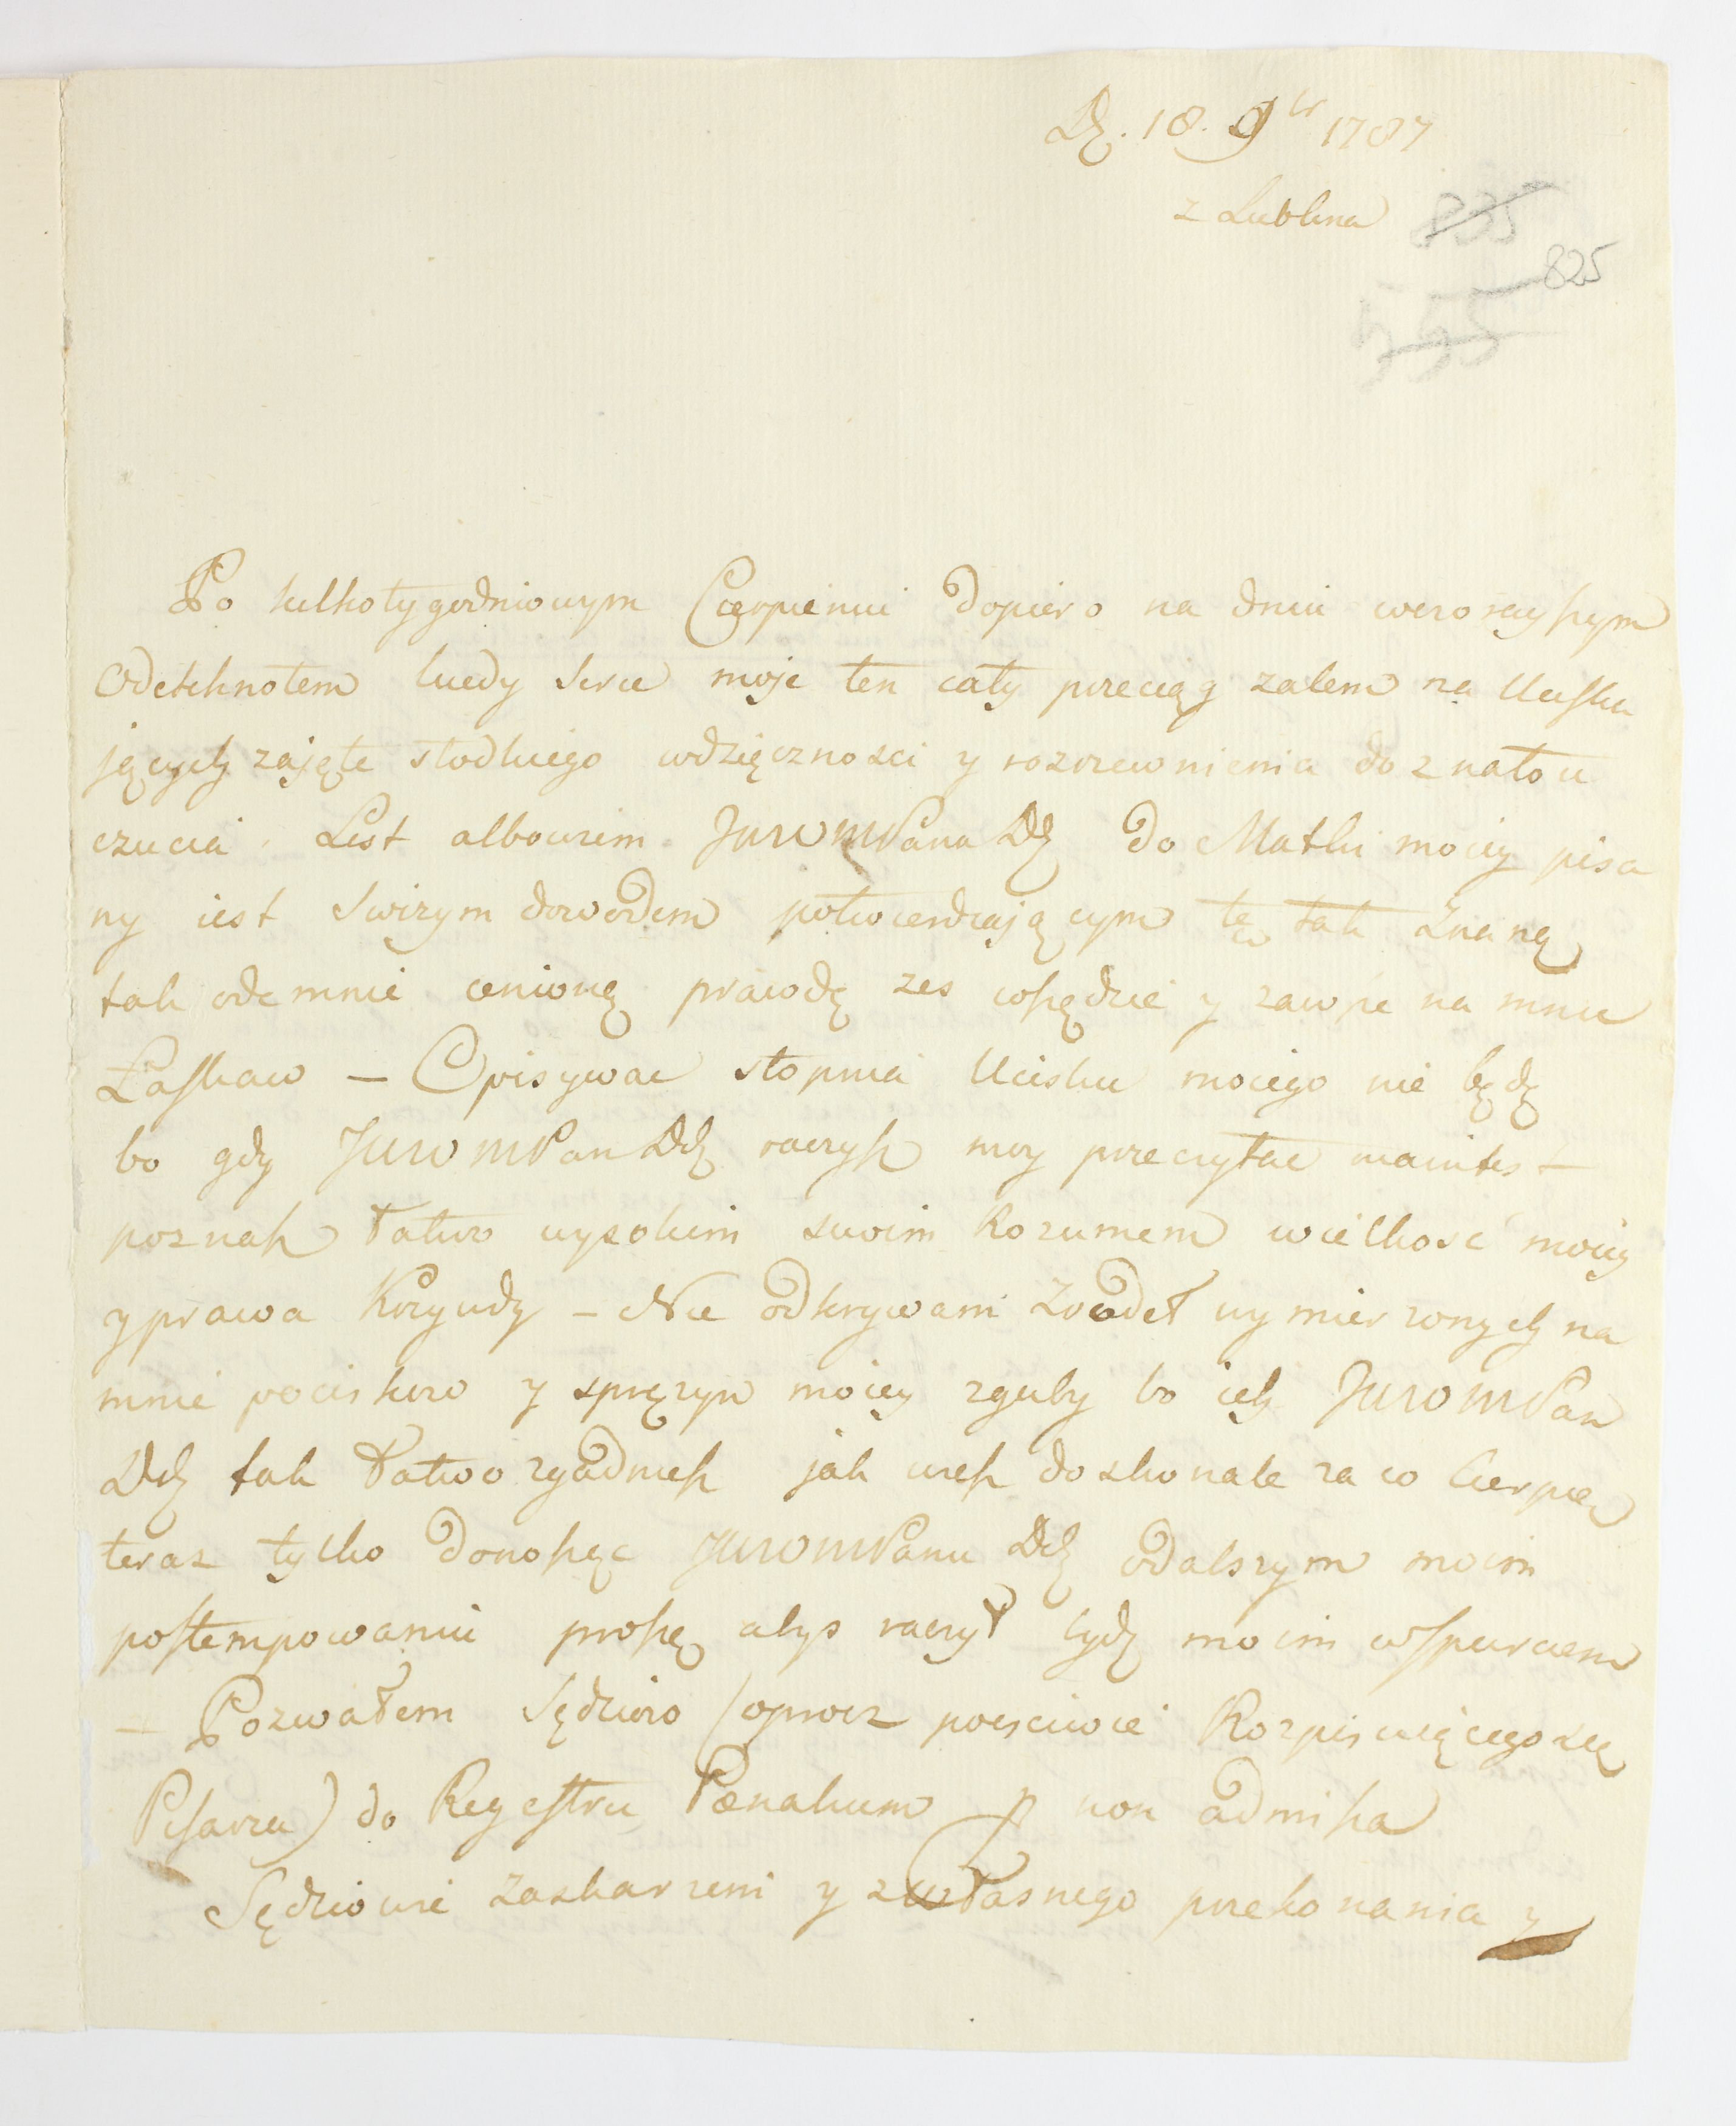 D. 18. 9br 1787
z Lublina
835
825
Po kilkotygodniowym Cierpieniu dopiero na dniu wczorayszym
Odetchnołem kiedy serce moje ten cały przeciąg zalem na Ucisku
jących zajęte słodkiego wdzięcznosci y rozrzewnienia doznało u
czucia. List albowiem JWWMPana Dd do Matki moiey pisa
ny iest swizym dowodem potwierdzaiącym tę tak Znaną
tak odemnie cenioną prawdę zes wszędzie y zawsze na mnie
Łaskaw – Opisywac stopnia Ucisku moiego nie będę
bo gdy JWWMPan Dd raczysz moy przeczytac manifest
poznasz łatwo wysokim swoim Rozumem wielkosc moiey
y prawa Krzywdy – Nie odkrywam Zrodeł wymierzonych na
mnie pociskow y spręzyn moiey zguby bo ich JWWMPan
Dd tak łatwo zgadniesz jak wiesz doskonale za co Cierpię
teraz tylko donosząc JWWMPanu Dd odalszym moim
postempowaniu proszę abys raczył bydz moim wsparciem
– Pozwałem Sędziow (oprocz poczciwie Rozpisuiącego się
Pisarza) do Regestru Pœnalium p non admissa
Sędziowie zaskarzeni y z własnego przekonania y